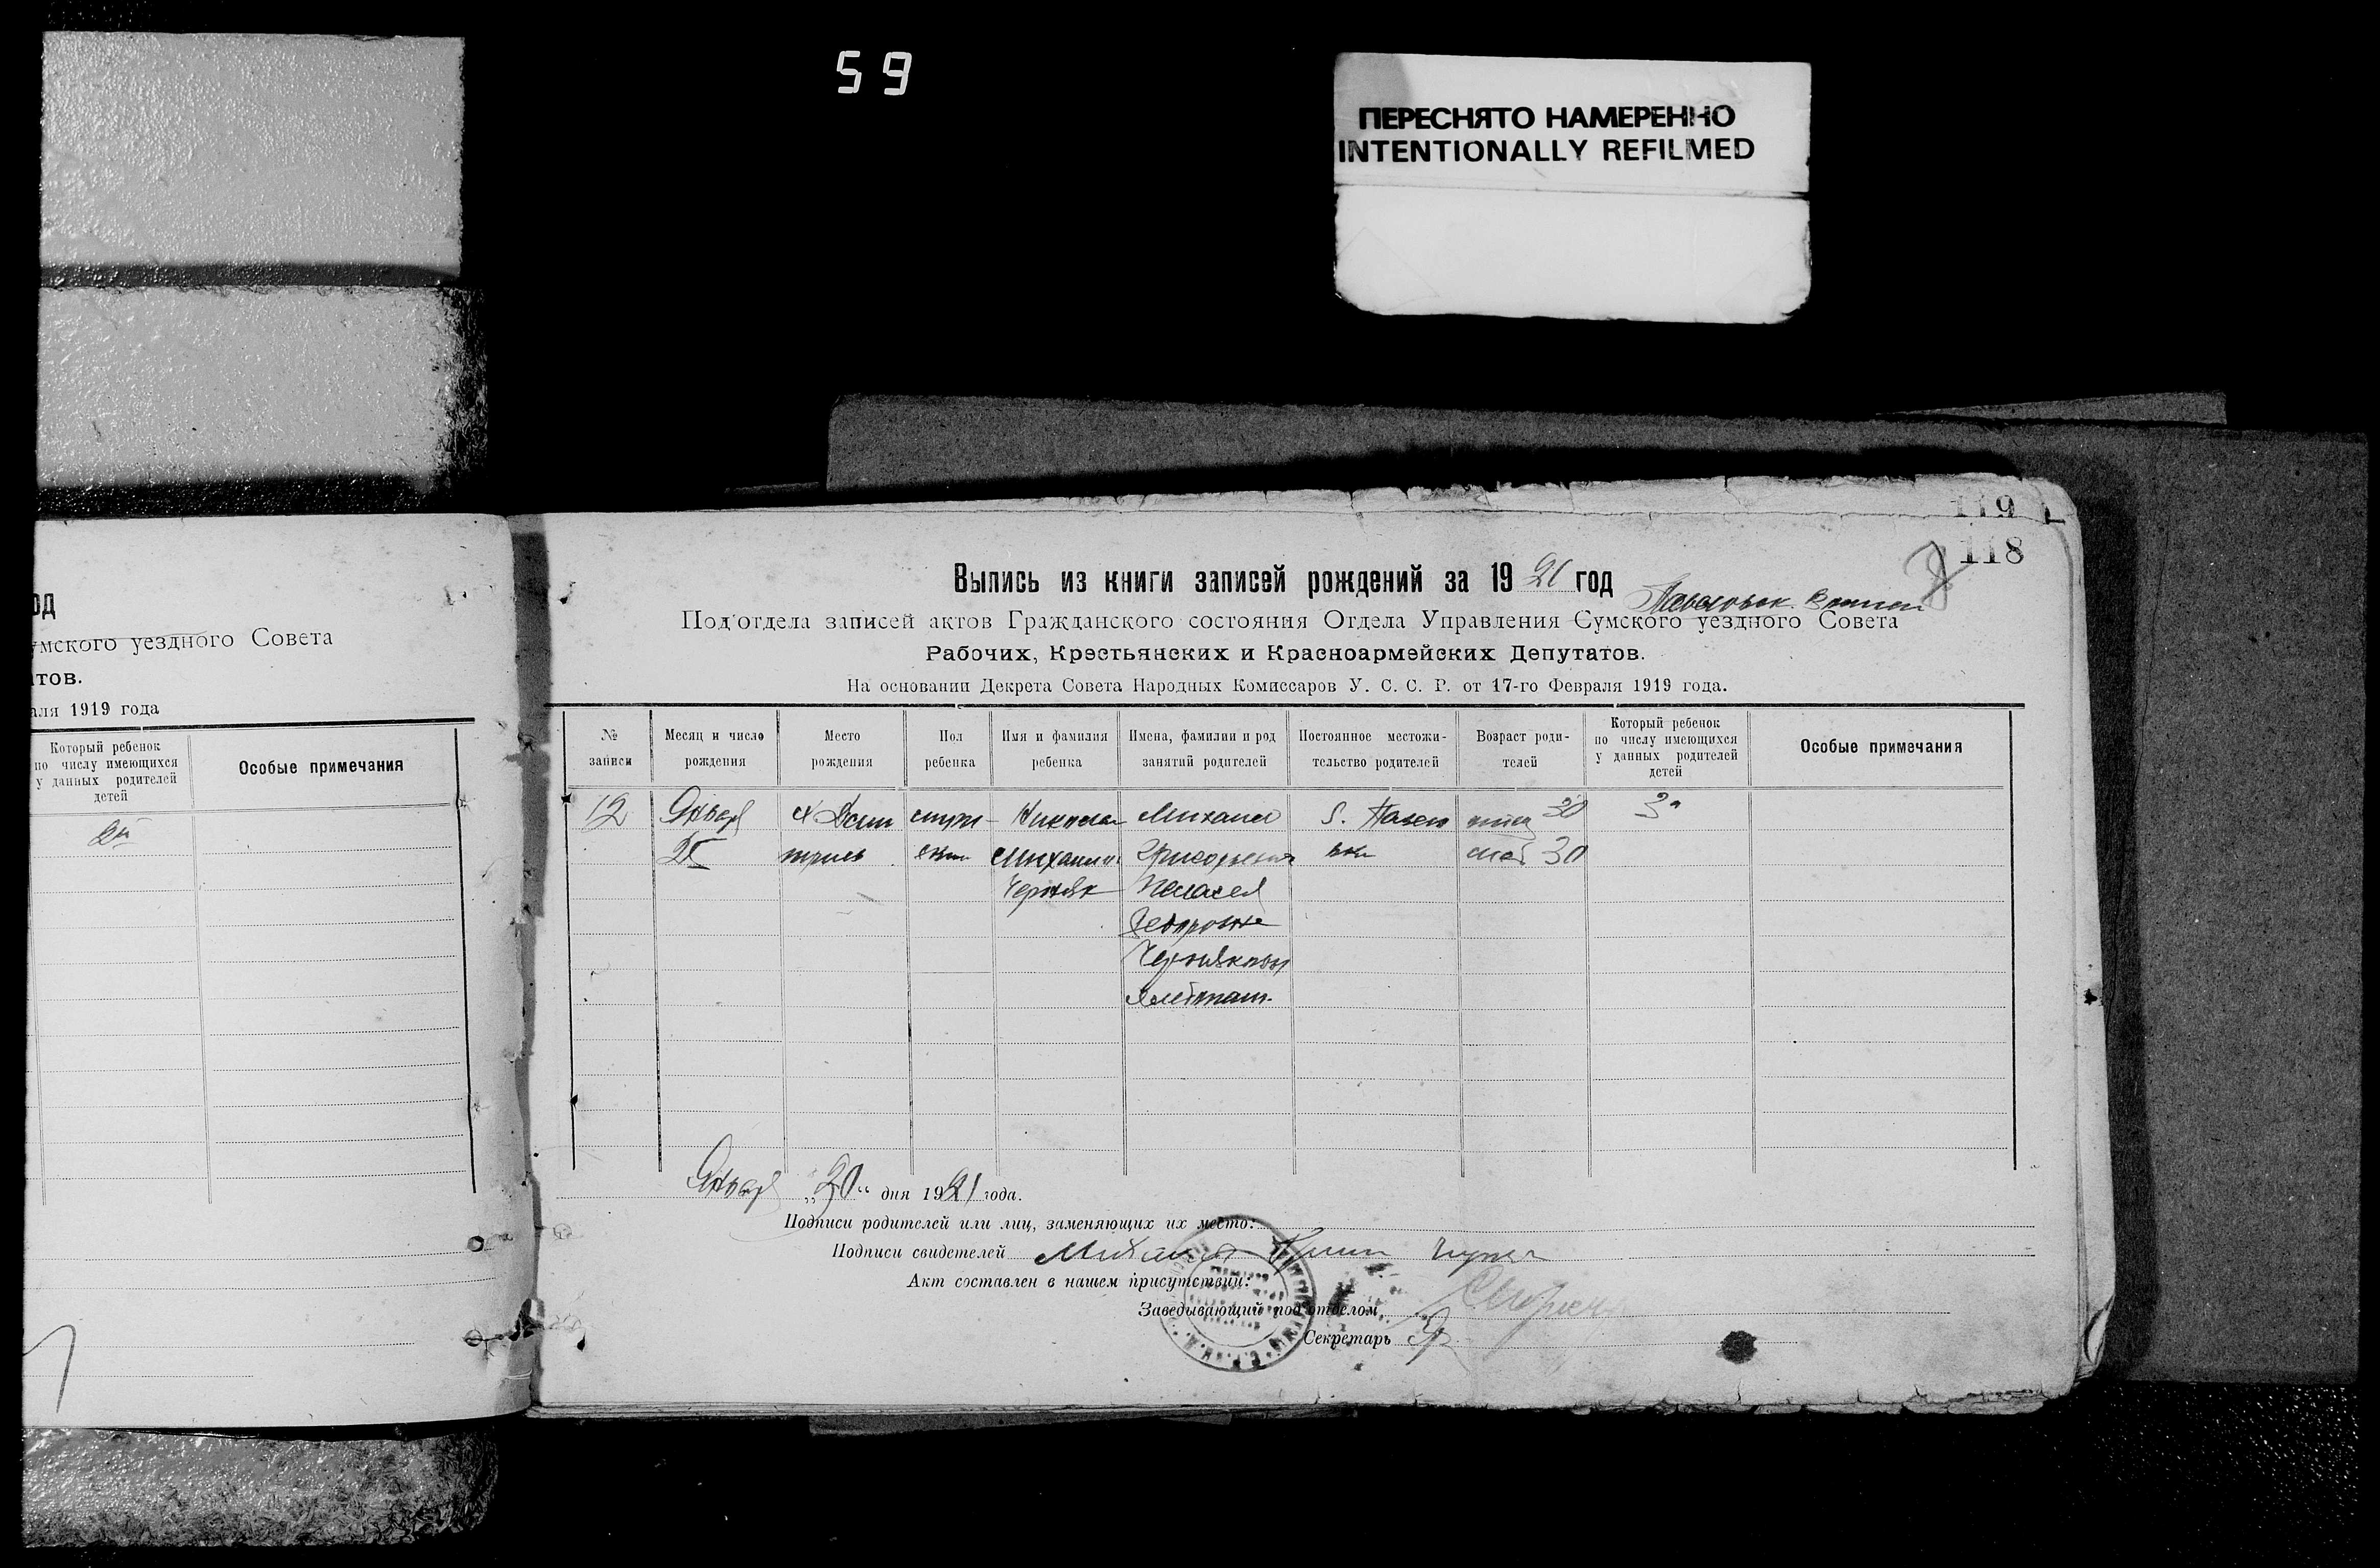 59
ПЕРЕСНЯТО НАМЕРЕННО
INTENTIONALLY REFILMED
119
118
од
умского уездного Совета
тов.
аля 1919 года
Который ребенок
по числу имеющихся
у данных родителей
детей
Особые примечания
2й
Выпись из книги записей рождений за 1921 год
Под'отдела записей актов Гражданского состояния Отдела Управления Сумского уездного Совета
Рабочих, Крестьянских и Красноармейских Депутатов.
На основании Декрета Совета Народных Комиссаров У. С. С. Р. от 17-го Февраля 1919 года.
№ записи
Месяц и число рождения
Место рождения
Пол ребенка
Имя и фамилия ребенка
Имена, фамилии и род занятий родителей
Постоянное местожительство родителей
Возраст родителей
Который ребенок по числу имеющихся у данных родителей детей
Особые примечания
12 Январ Николай Михаил с. Павло 30 3й
Михаил Григорьевич вки 30
Черняк Пелагея
Федоровна
Черняковы
хлебопаш.
Январ „20“ дня 1921 года.
Подписи родителей или лиц, заменяющих их место:
Подписи свидетелей Михаил
Акт составлен в нашем присутствии:
Заведывающий под'отделом
Секретарь